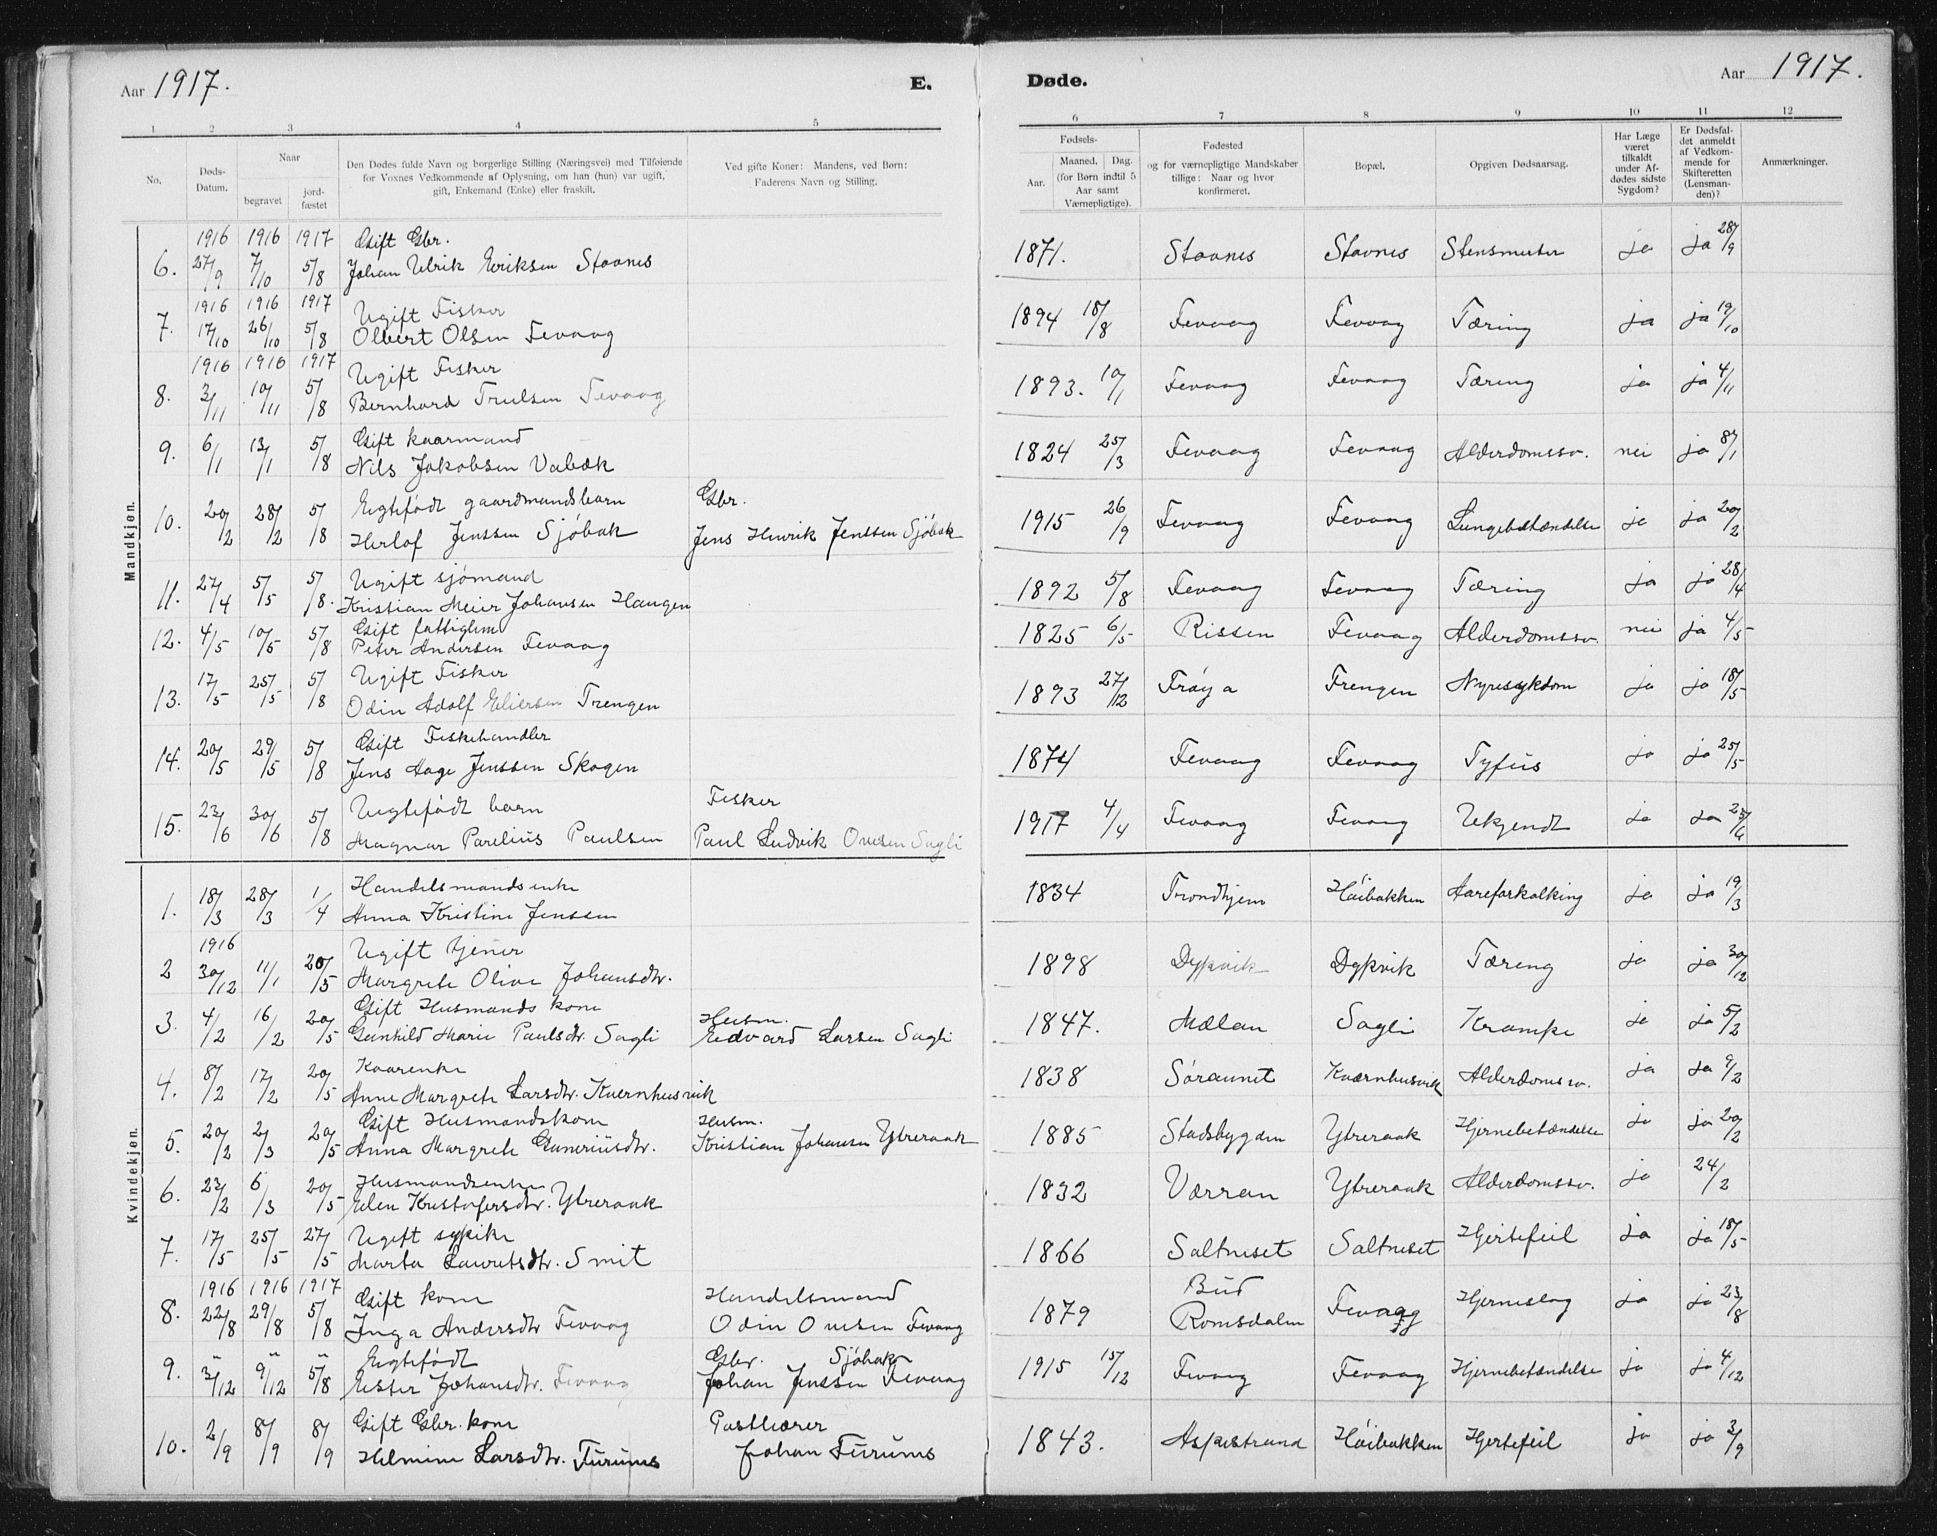 Aar 1917. E. Døde. Aar 1917.
1 2 3 4 5 6 7 8 9 10 11 12
No. Døds-Datum. Naar begravet jordfæstet Den Dødes fulde Navn og borgerlige Stilling (Næringsvei) med Tilføiende for Voxnes Vedkommende af Oplysning, om han (hun) var ugift, gift, Enkemand (Enke) eller fraskilt. Ved gifte Koner: Mandens, ved Børn: Faderens Navn og Stilling. Fødsels- Aar. Maaned, Dag. (for Børn indtil 5 Aar samt Værnepligtige). Fødested og for værnepligtige Mandskaber tillige: Naar og hvor konfirmeret. Bopæl. Opgiven Dødsaarsag. Har Læge været tilkaldt under Afdødes sidste Sygdom? Er Dødsfaldet anmeldt af Vedkommende for Skifteretten (Lensmanden)? Anmærkninger.
Mandkjøn.
1916 1916 1917 Gift Gbr.
6. 27/9 7/10 5/8 Johan Ulrik Eriksen Stavnes 1871. Stavnes Stavnes ja ja 28/9
1916 1916 1917 Ugift Fisker
7. 17/10 26/10 5/8 Olbert Olsen Fevaag 1894 18/8 Fevaag Fevaag Tæring ja ja 19/10
1916 1916 1917 Ugift Fisker
8. 3/11 10/11 5/8 Bernhard Trulsen Fevaag 1893. 10/1 Fevaag Fevaag Tæring ja ja 4/11
Gift kaarmand
9. 6/1 13/1 5/8 Nils Jakobsen Vabæk 1824 25/3 Fevaag Fevaag Alderdomssv. nei ja 8/1
Egtefødt gaardmandsbarn Gbr.
10. 20/2 28/2 5/8 Herlof Jenssen Sjøbak Jens Henrik Jenssen Sjøbak 1915 26/9 Fevaag Fevaag Lungebetændelse ja ja 20/2
Ugift sjømand
11. 27/4 5/5 5/8. Kristian Meier Johansen Haugen 1892 5/8 Fevaag Fevaag Tæring ja ja 28/4
Gift fattiglem
12. 4/5 10/5 5/8 Peter Andersen Fevaag 1825 6/5 Rissen Fevaag Alderdomssv. nei ja 4/5
Ugift Fisker
13. 17/5 25/5 5/8 Odin Adolf Eliersen Trengen 1893 27/12 Frøya Trengen Nyresykdom ja ja 18/5
Gift Fiskehandler
14. 20/5 29/5 5/8 Jens Hage Jenssen Skogen 1874 Fevaag Fevaag Tyfus ja ja 25/5
Uegtefødt barn Fisker
15. 23/6 30/6 5/8 Magnar Parelius Paulsen Paul Ludvik Ovesen Sagli 1917 4/4 Fevaag Fevaag Ukjendt ja ja 25/6
Kvindekjøn.
Handelsmandsenke
1. 18/3 28/3 1/4 Anna Kristine Jenssen 1834 Trondhjem Høibakken Aareforkalking ja ja 19/3
1916 Ugift tjener
2 30/12 11/1 20/5 Margrete Olive Johansdtr. 1898 Dypvik Dypvik Tæring ja ja 30/12
Gift Husmands kone Husm.
3. 4/2 16/2 20/5 Gunhild Marie Paulsdtr. Sagli Edvard Larsen Sagli 1847. Mælan Sagli Krampe ja ja 5/2
Kaarenke
4. 8/2 17/2 20/5 Anne Margrete Larsdtr. Kvernhusvik 1838 Søraunet Kvernhusvik Alderdomssv. ja ja 9/2
Gift Husmandskone Husm.
5. 20/2 2/3 20/5 Anna Margrete Guneriusdtr. Kristian Johansen Ytreraak 1885 Stadsbygden Ytreraak Hjernebetændelse ja ja 20/2
Husmandsenke
6. 23/2 6/3 20/5 Elen Kristofersdtr. Ytreraak 1832 Værran Ytreraak Alderdomssv. ja 24/2
Ugift sypike
7. 17/5 25/5 27/5 Marta Lauritsdtr. Smit 1866 Saltneset Saltneset Hjertefeil ja ja 18/5
1916 1916 1917 Gift kone Handelsmand Bud
8. 22/8 29/8 5/8 Inga Andersdtr Fevaag Odin Ovesen Fevaag 1879 Romsdalen Fevaag Hjerneslag ja ja 23/8
" " " Egtefødt Gbr. Sjøbak
9. 3/12 9/12 5/8 Ester Johansdtr. Fevaag Johan Jenssen Fevaag 1915 15/12 Fevaag Fevaag Hjernebetændelse ja ja 4/12
Gift Gbr. kone Postbærer
10. 2/9 8/9 8/9 Helmine Larsdtr. Furunes Johan Furunes 1843. Aspestrand Høibakken Hjertefeil ja ja 3/9